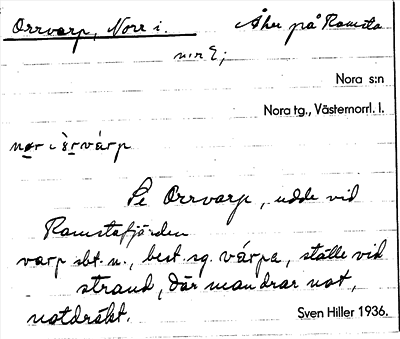 Orrvarp, Norr i. Åker på Ramsta
n:r 2;
Nora s:n
Nora tg., Västernorrl. l.
nør i èrvárp
Se Orrvarp, udde vid
Ramstafjärden
varp sbt. n., best. sg. várpa, ställe vid
strand, där man drar not,
notdräkt.
Sven Hiller 1936.